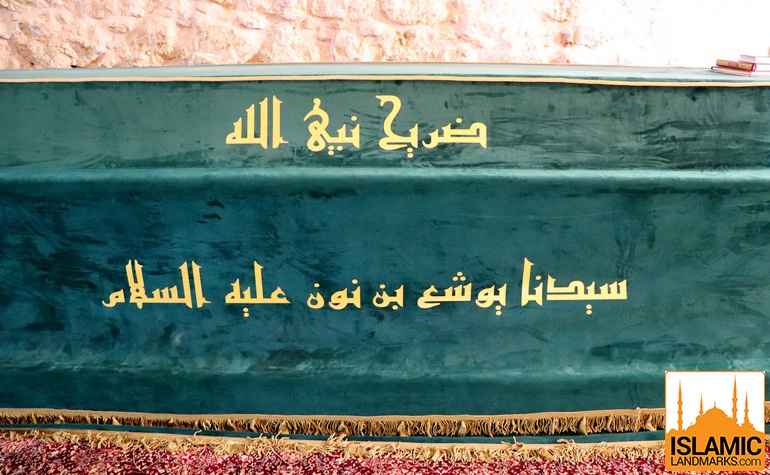 ضريح نبي الله
سيدنا يوشع بن نون عليه السلام
ISLAMIC
LANDMARKS.com